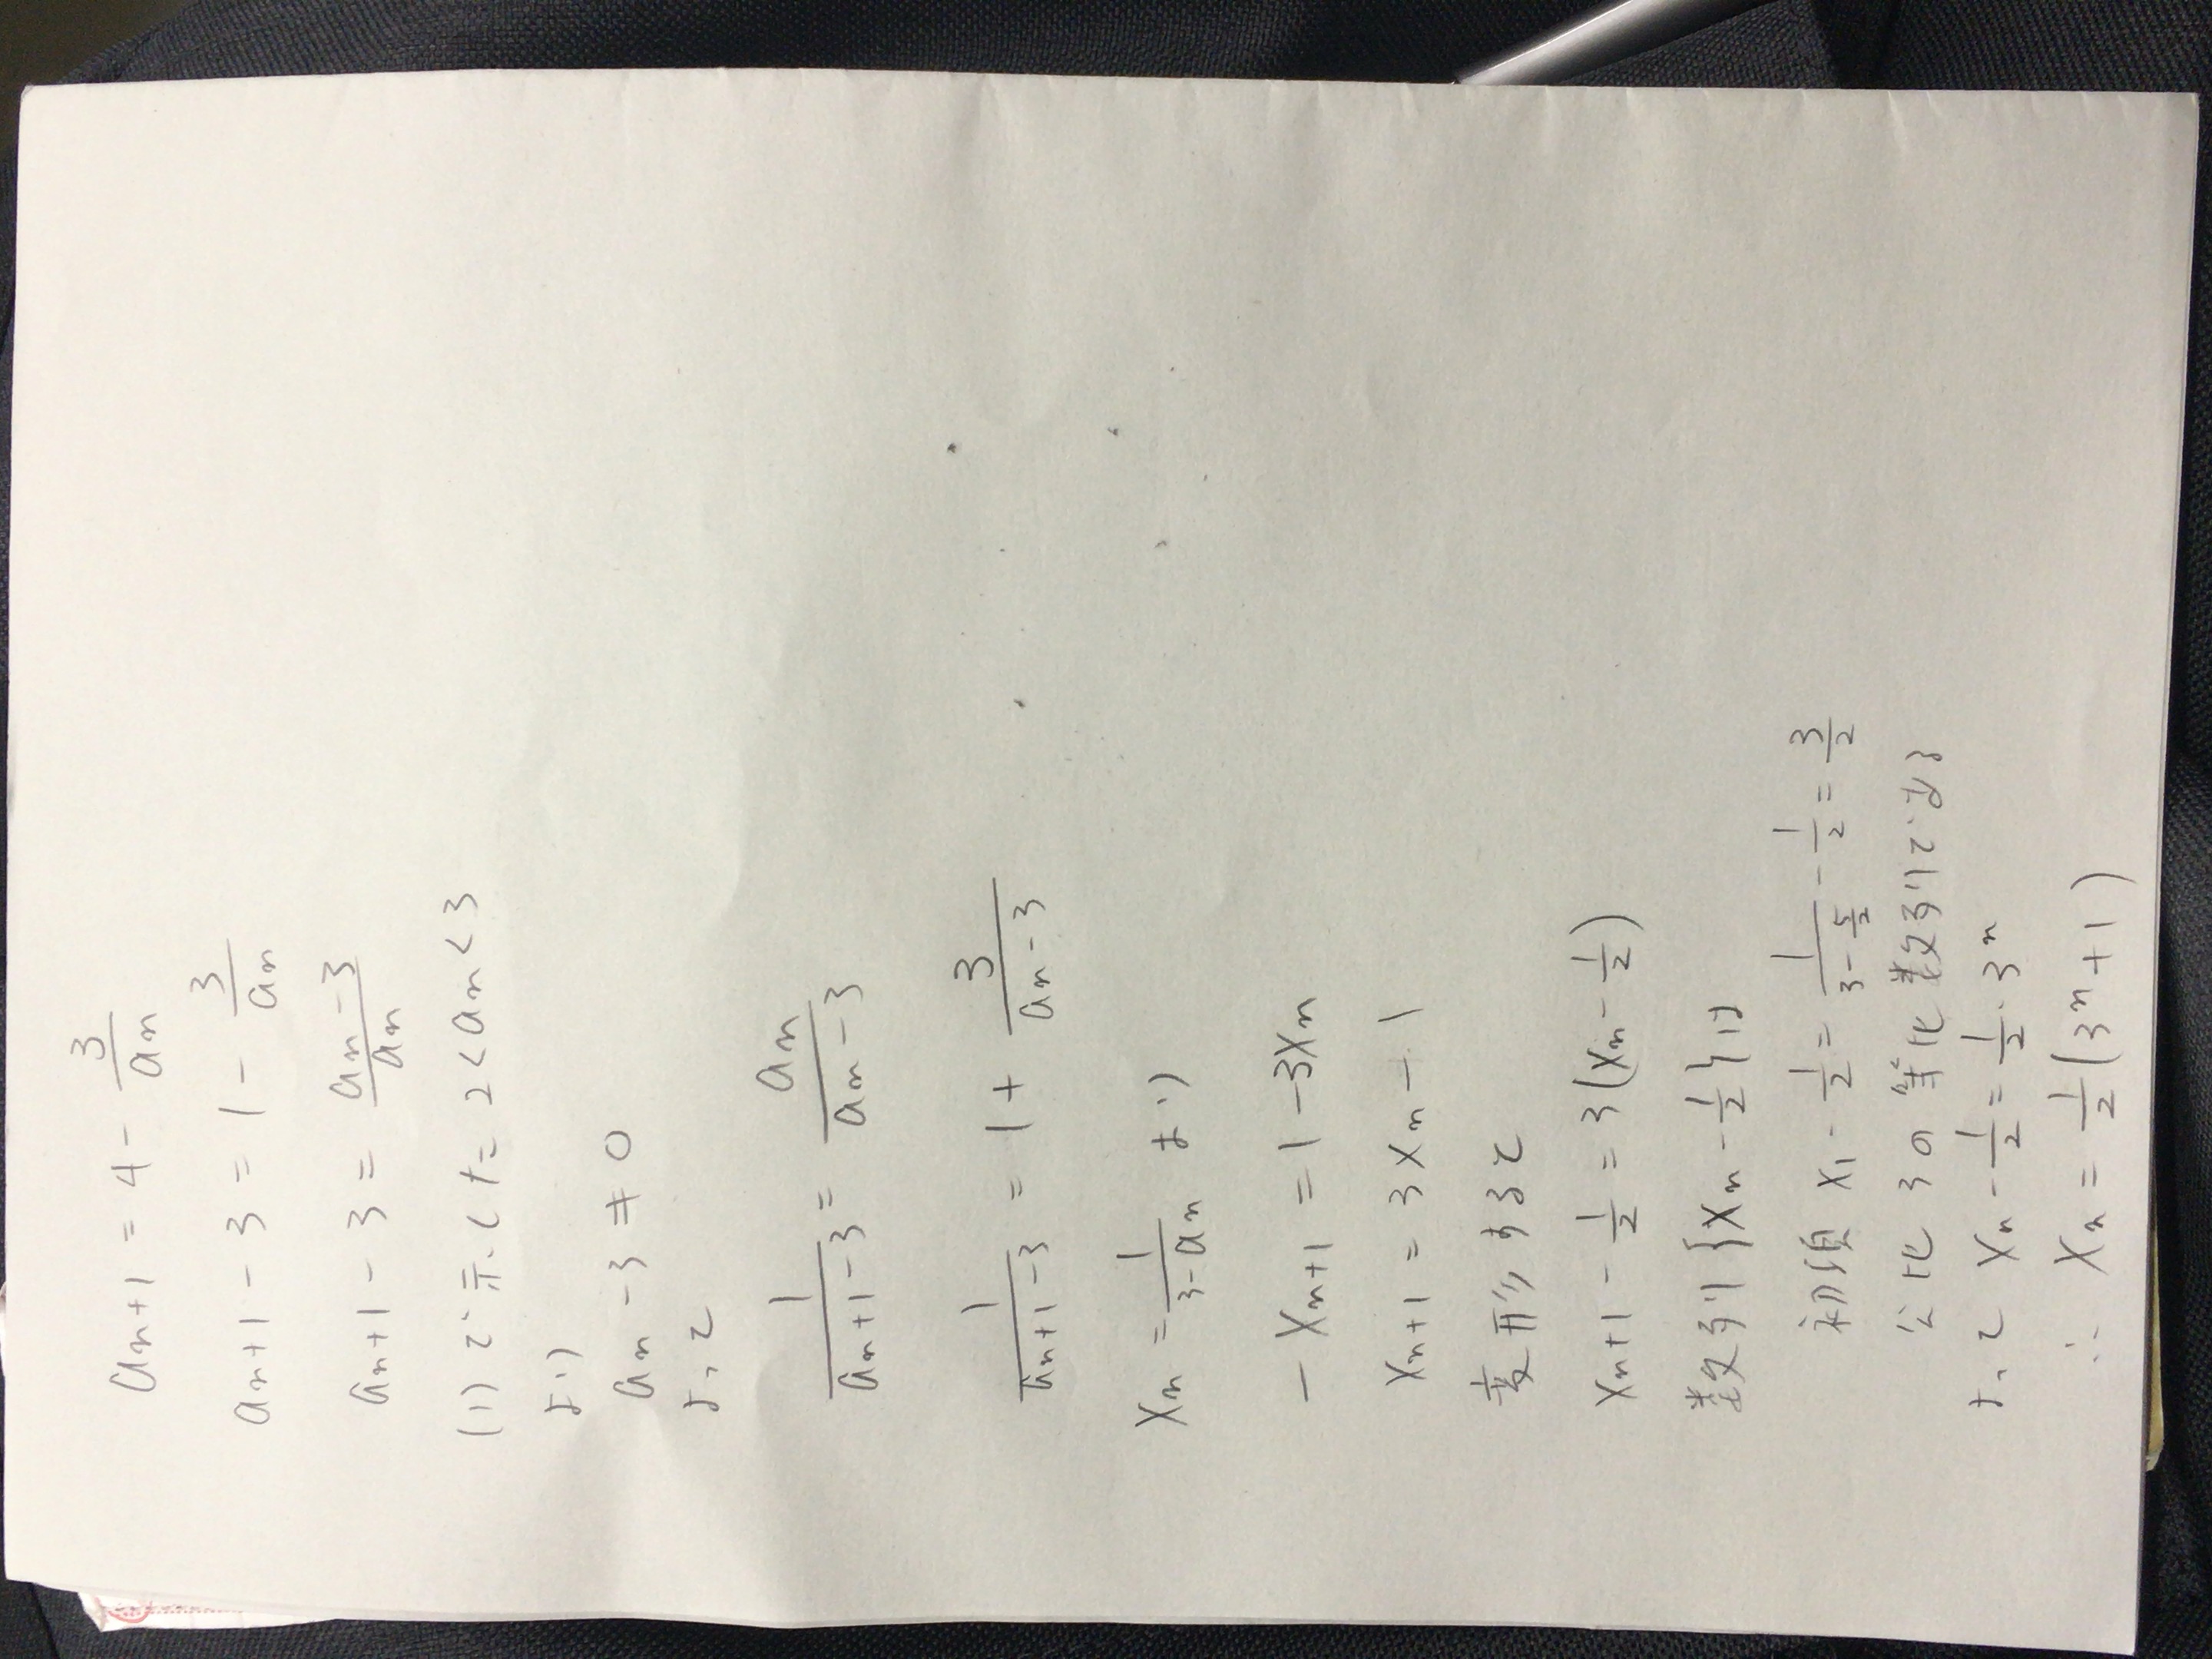 an+1 = 4 - 3/an
an+1 - 3 = 1 - 3/an
an+1 - 3 = (an-3)/an
(1)で示した 2<an<3
より
an - 3 ≠ 0
よって
1/(an+1-3) = an/(an-3)
1/(an+1-3) = 1 + 3/(an-3)
Xn = 1/(3-an) より
-Xn+1 = 1 - 3Xn
Xn+1 = 3Xn - 1
変形すると
Xn+1 - 1/2 = 3(Xn - 1/2)
数列{Xn - 1/2}は
初項 X1 - 1/2 = 1/(3-5/2) - 1/2 = 3/2
公比 3 の等比数列である
よって Xn - 1/2 = 1/2・3^n
∴ Xn = 1/2(3^n+1)